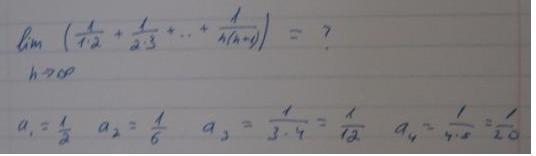 lim (1/1·2 + 1/2·3 + .. + 1/n(n+1)) = ?
n→∞
a₁ = 1/2 a₂ = 1/6 a₃ = 1/3·4 = 1/12 a₄ = 1/4·5 = 1/20